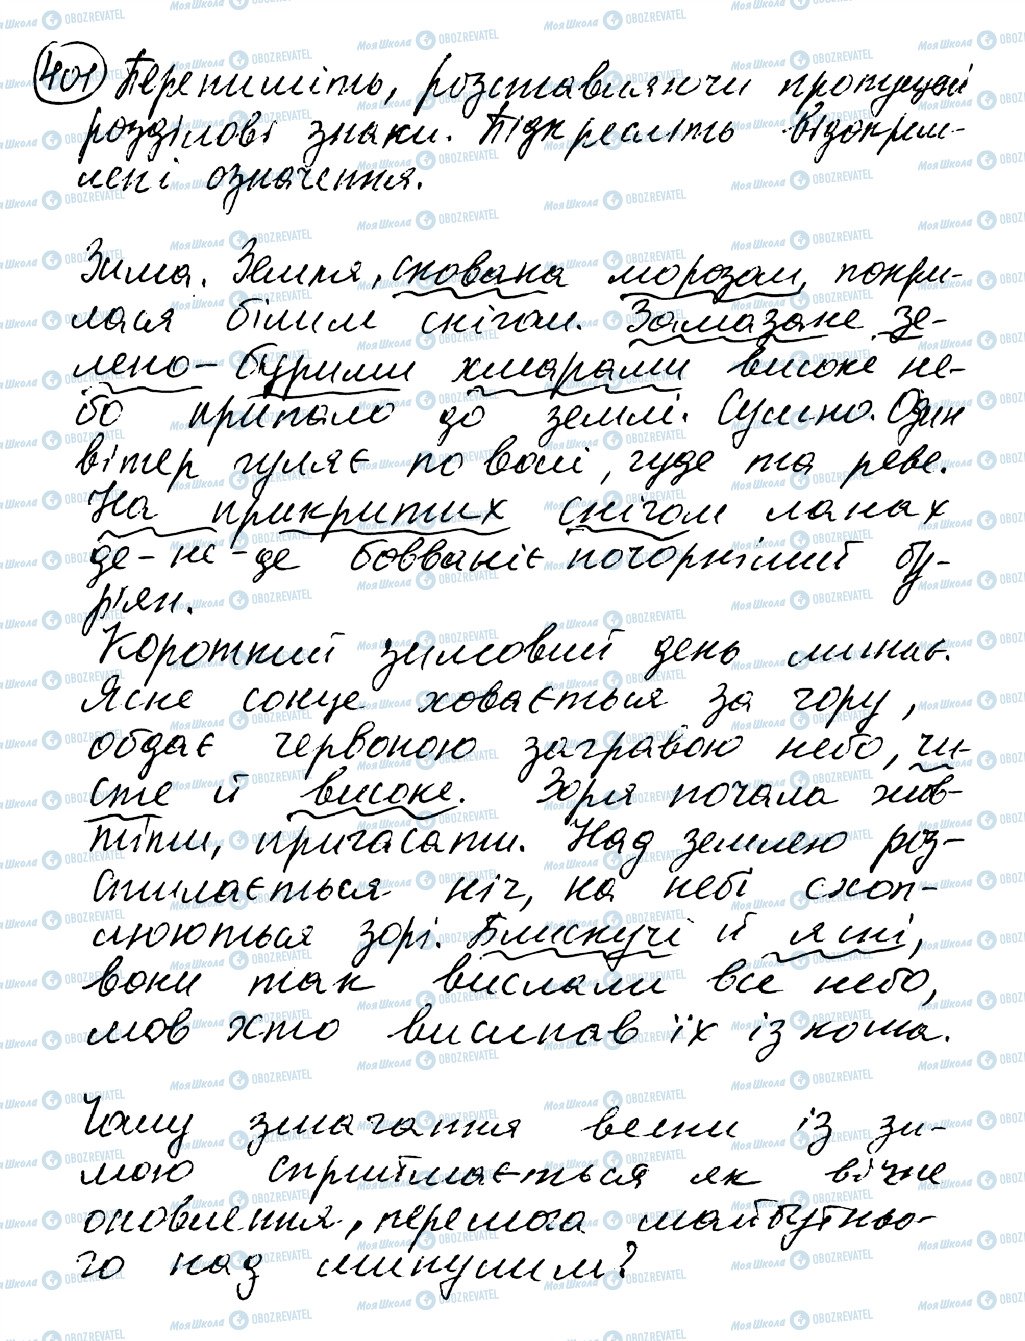 401 Перепишіть, розставляючи пропущені
розділові знаки. Підкресліть відокрем-
лені означення.
Зима. Земля, скована морозом, покри-
лася білим снігом. Замазане зе-
лено-бурими хмарами високе не-
бо припало до землі. Сумно. Один
вітер гуляє по волі, гуде та реве.
На прикритих снігом ланах
де-не-де бовваніє почорнілий бу-
р'ян.
Короткий зимовий день минає.
Ясне сонце ховається за гору,
обдає червоною загравою небо, чи-
сте й високе. Зоря почала жов-
тіти, пригасати. Над землею роз-
стилається ніч, на небі схоп-
люються зорі. Блискучі й ясні,
вони так вислали все небо,
мов хто висипав їх із коша.
Чому змагання весни із зи-
мою сприймається як вічне
оновлення, перемога майбутньо-
го над минулим?